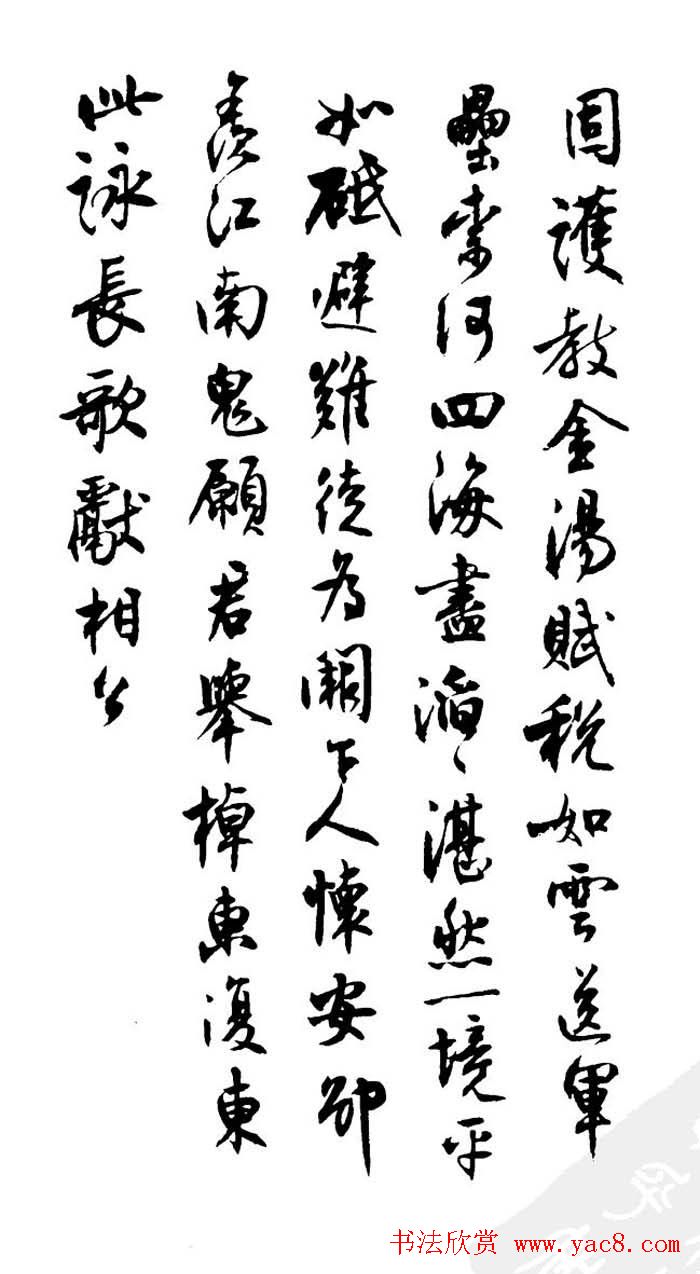 固護教金湯賦稅如雲送軍
壘柰何四海盡滔〻湛然一境平
如砥避難徒為闕下人懷安卻
羨江南鬼願君舉棹東復東
此詠長歌獻相公
书法欣赏 www.yac8.com